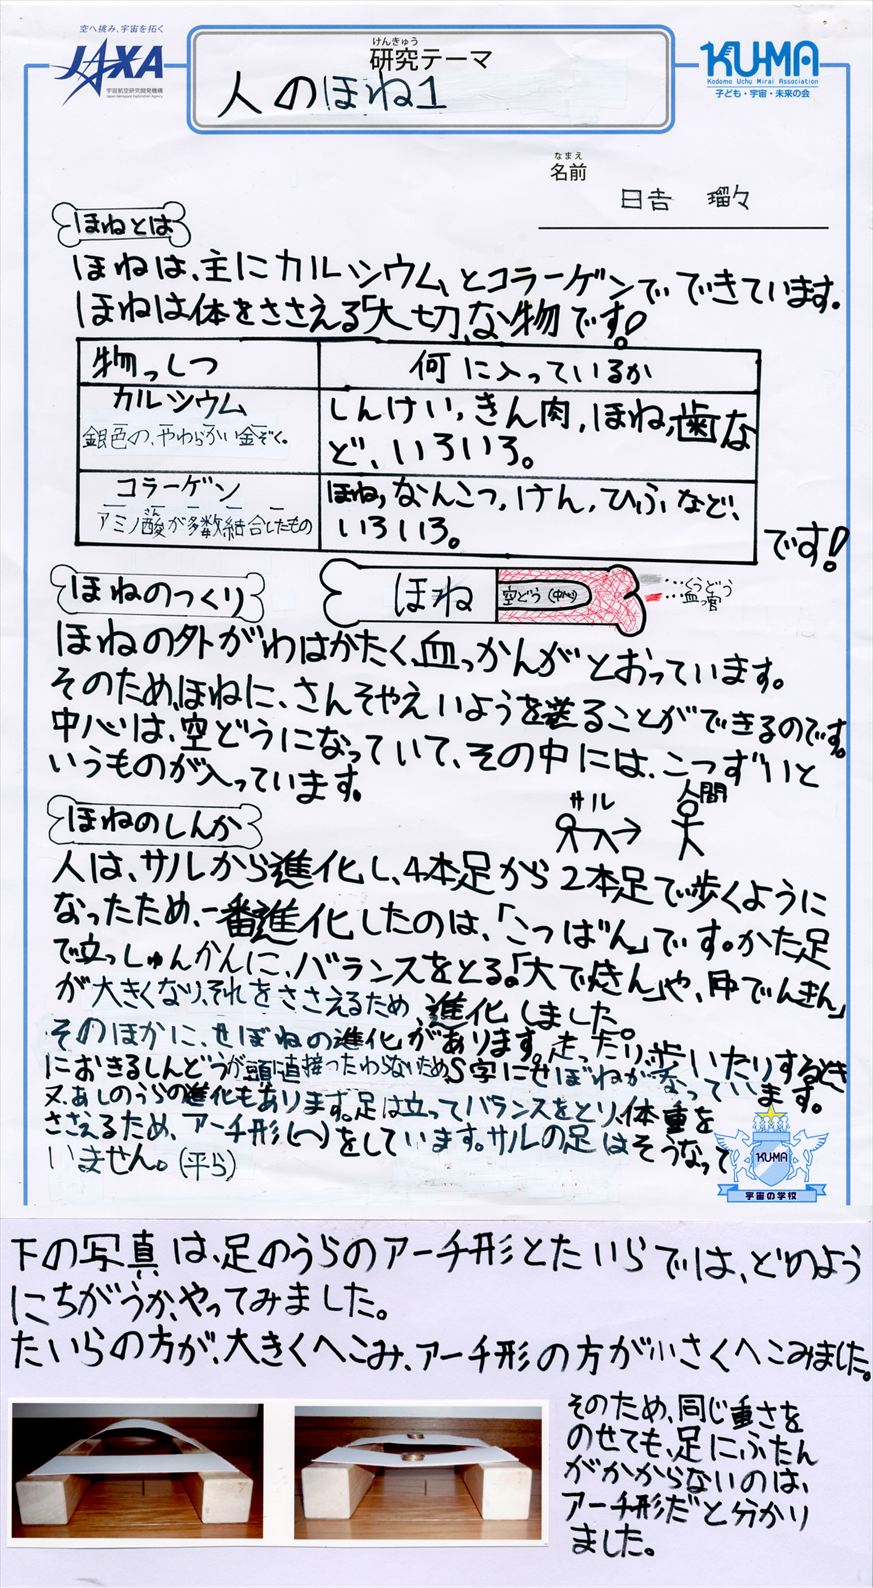 空へ挑み、宇宙を拓く
JAXA
宇宙航空研究開発機構
Japan Aerospace Exploration Agency
けんきゅう
研究テーマ
人のほね1
KU-MA
Kodomo Uchu Mirai Association
子ども・宇宙・未来の会
なまえ
名前
日吉 瑠々
ほねとは
ほねは、主にカルシウム、とコラーゲンでできています。
ほねは体をささえる「大切」な物です!
物っしつ
何に入っているか
カルシウム
銀色の、やわらかい金ぞく。
しんけい,きん肉,ほね,歯な
ど、いろいろ。
コラーゲン
さん
アミノ酸が多数結合したもの
ほね,なんこつ,けん,ひふなど、
いろいろ。
です!
ほねのつくり
ほね
空どう(中心)
…くうどう
…血っ管
ほねの外がわはかたく、血っかんがとおっています。
そのため、ほねに、さんそやえいようを送ることができるのです。
中心は、空どうになっていて、その中には、こつずいと
いうものが入っています。
ほねのしんか
サル
人間
人は、サルから進化し、4本足から2本足で歩くように
なったため、一番進化したのは、「こつばん」です。かた足
で立っしゅんかんに、バランスをとる「大でんきん」や、「中でんきん」
が大きくなり、それをささえるため、進化しました。
そのほかに、せぼねの進化があります。走ったり、歩いたりするとき
におきるしんどうが頭に直接つたわらないため、S字にせぼねがなっています。
又、あしのうらの進化もあります。足は立ってバランスをとり、体重を
ささえるため、アーチ形(⌒)をしています。サルの足はそうなって
いません。(平ら)
KU-MA
宇宙の学校
下の写真は、足のうらのアーチ形とたいらでは、どのよう
にちがうか、やってみました。
たいらの方が、大きくへこみ、アーチ形の方が小さくへこみました。
そのため、同じ重さを
のせても、足にふたん
がかからないのは、
アーチ形だと分かり
ました。